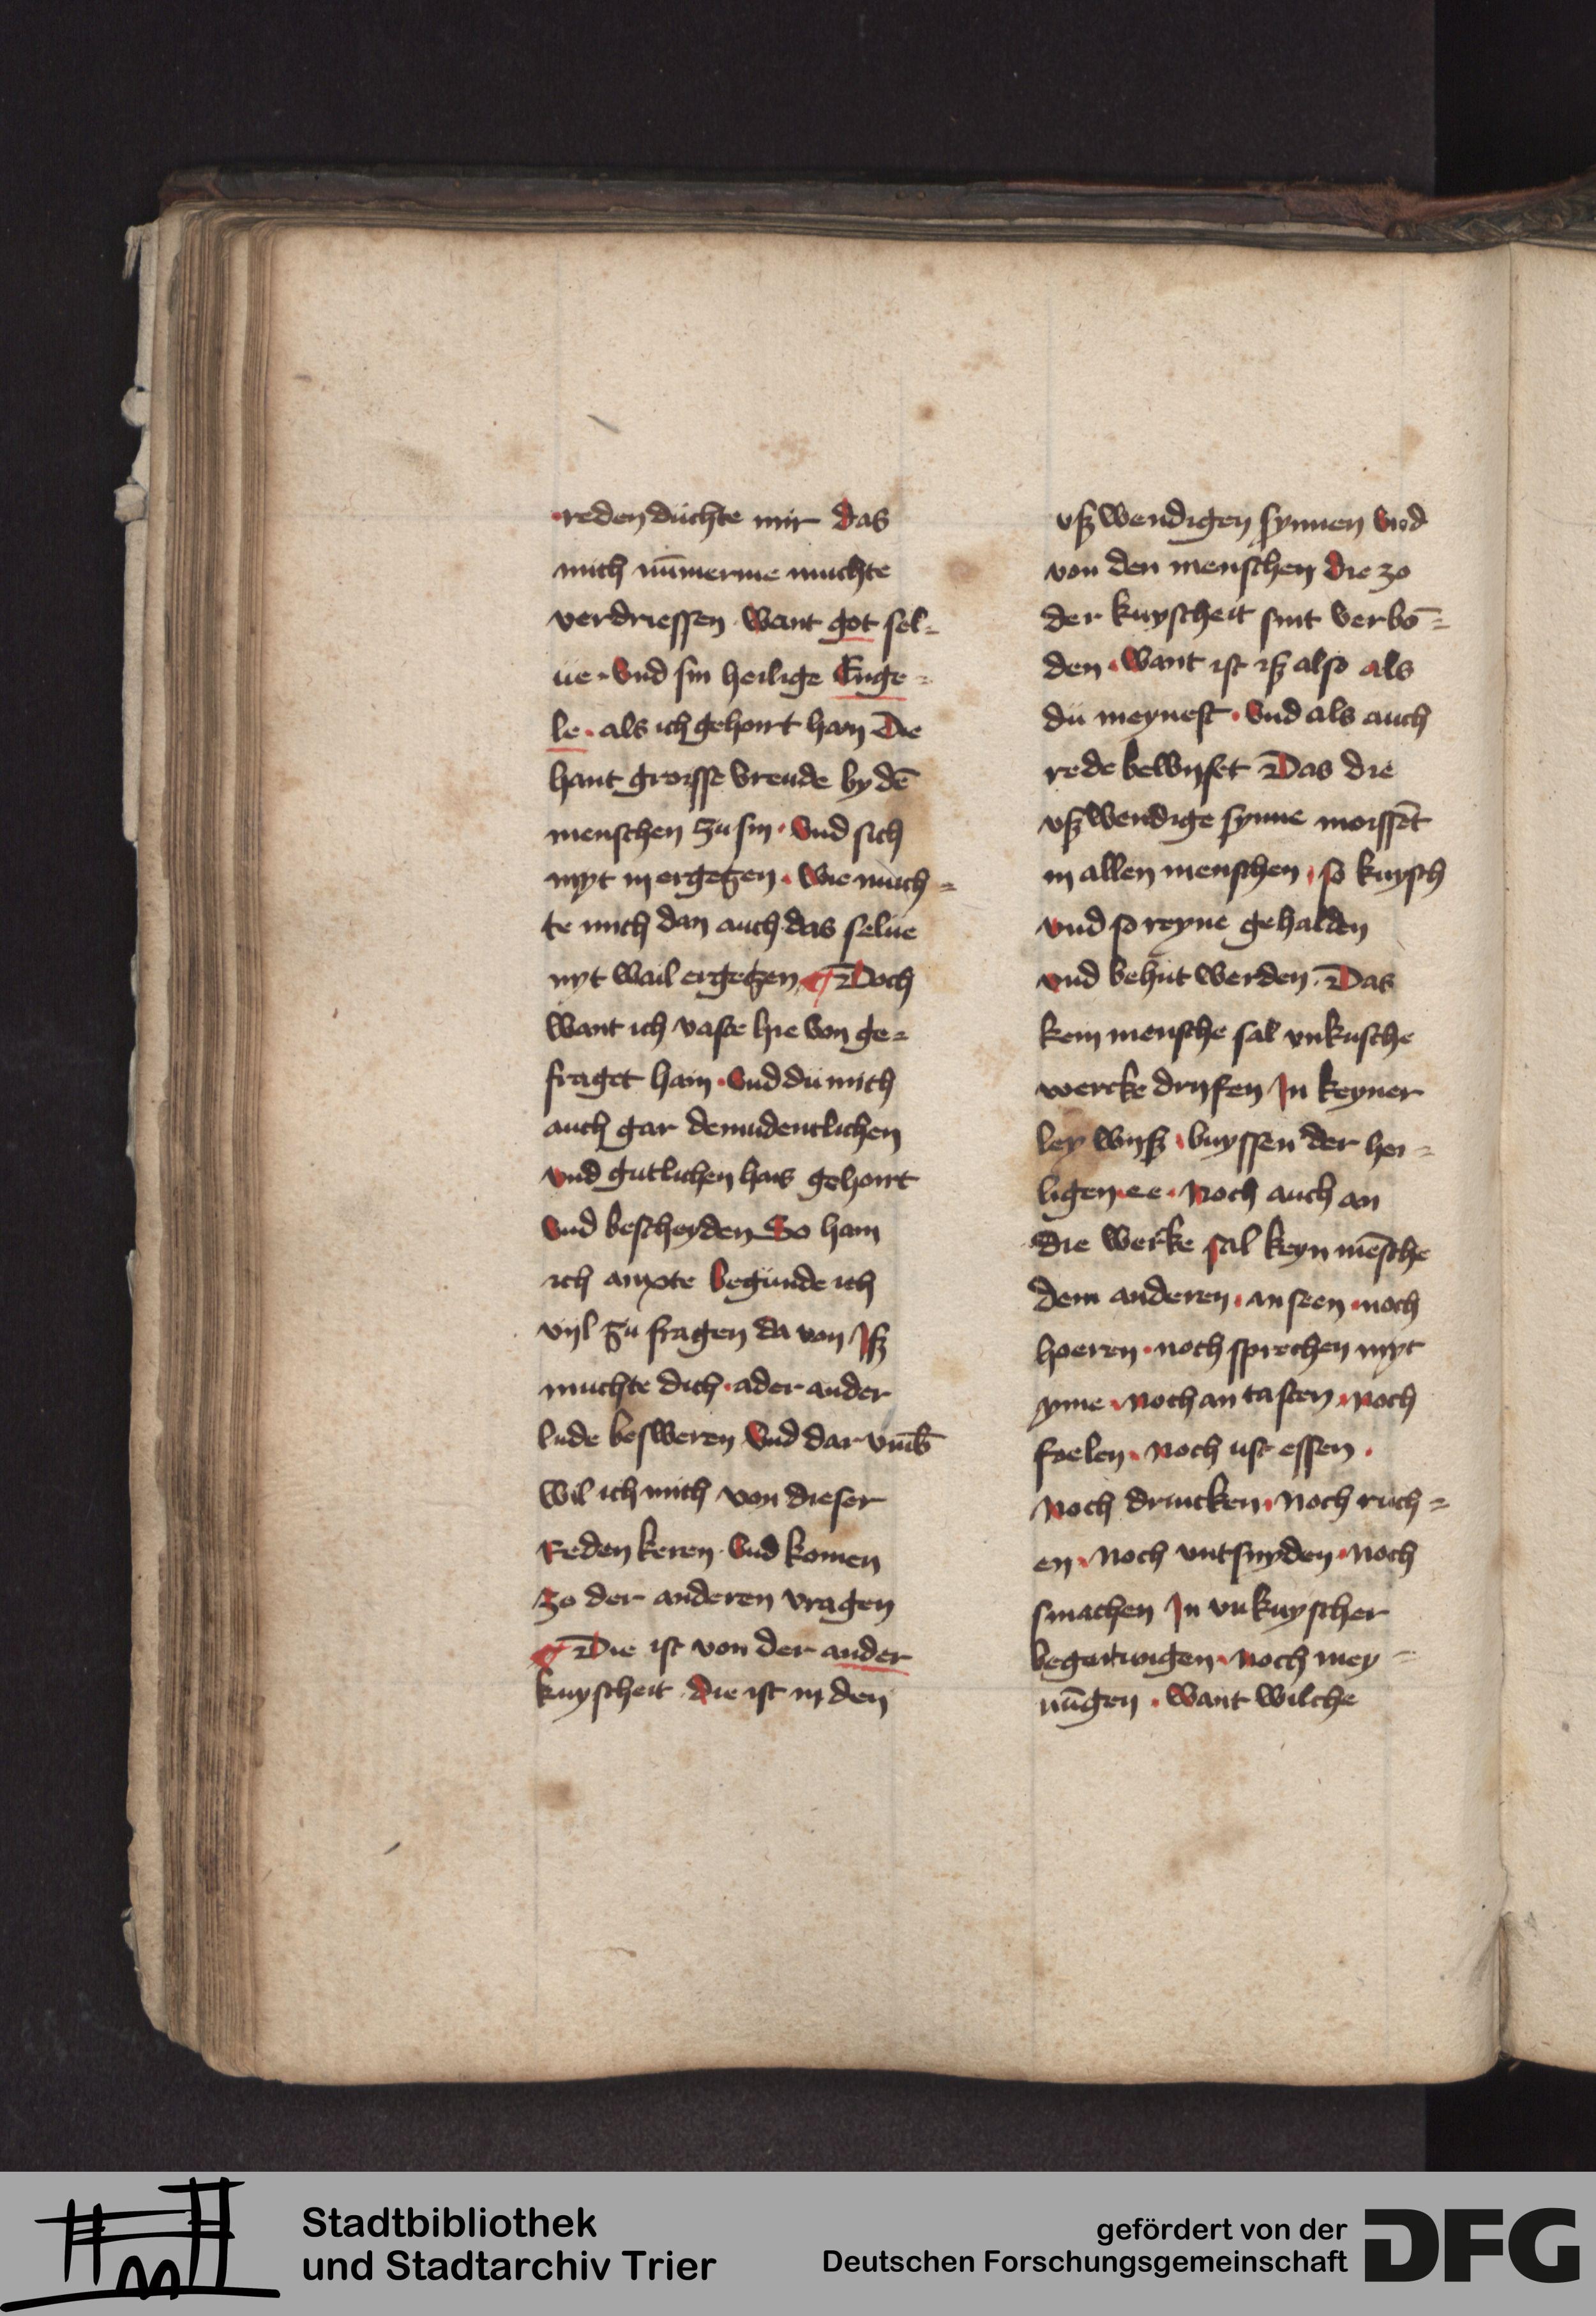 reden düchte mir das
mich nūmerme muchte
verdriessen want got sel-
ue · vnd sin heilige Enge-
le · als ich gehoirt han Die
hant groisse vreude by dē
menschen zu sin · vnd sich
myt in ergetzen · wie much-
te mich dan auch das selue
nyt wail ergetzen Doch
want ich vaste hie von ge-
fraget hain · vnd du mich
auch gar demudentlichen
vnd gutlichen hais gehoirt
vnd bescheyden So hain
ich anxte begunde ich
vijl zu fragen da von Jsz
muchte dich · ader ander
lude besweren vnd dar vmb
wil ich mich von dieser
Reden keren · vnd komen
zo der anderen vragen
Die ist von der ander
kuyscheit die ist in den
vszwendigen synnen vnd
von den menschen die zo
der kuyscheit sint verbō-
den · want ist isz also als
du meynest · vnd als auch
rede bewijset Das die
vszwendige synne moissēt
in allen menschen · so kuysch
vnd so reyne gehalden
vnd behüt werden · Das
kein mensche sal vnkusche
wercke drijfen Jn keyner
ley wijsz · buyssen der hei-
ligen ee · Noch auch an
die werke sal keyn mēsche
dem anderen · an seen · noch
hoeren · noch sprechen myt
yme · Noch an tasten · Noch
foelen · Noch ust essen ·
Noch drincken · Noch ruch-
en · Noch vntsnyden · Noch
smachen Jn vnkuyscher
begeitungen · Noch mey-
nūgen · want wilche
Stadtbibliothek
und Stadtarchiv Trier
gefördert von der
Deutschen Forschungsgemeinschaft
DFG